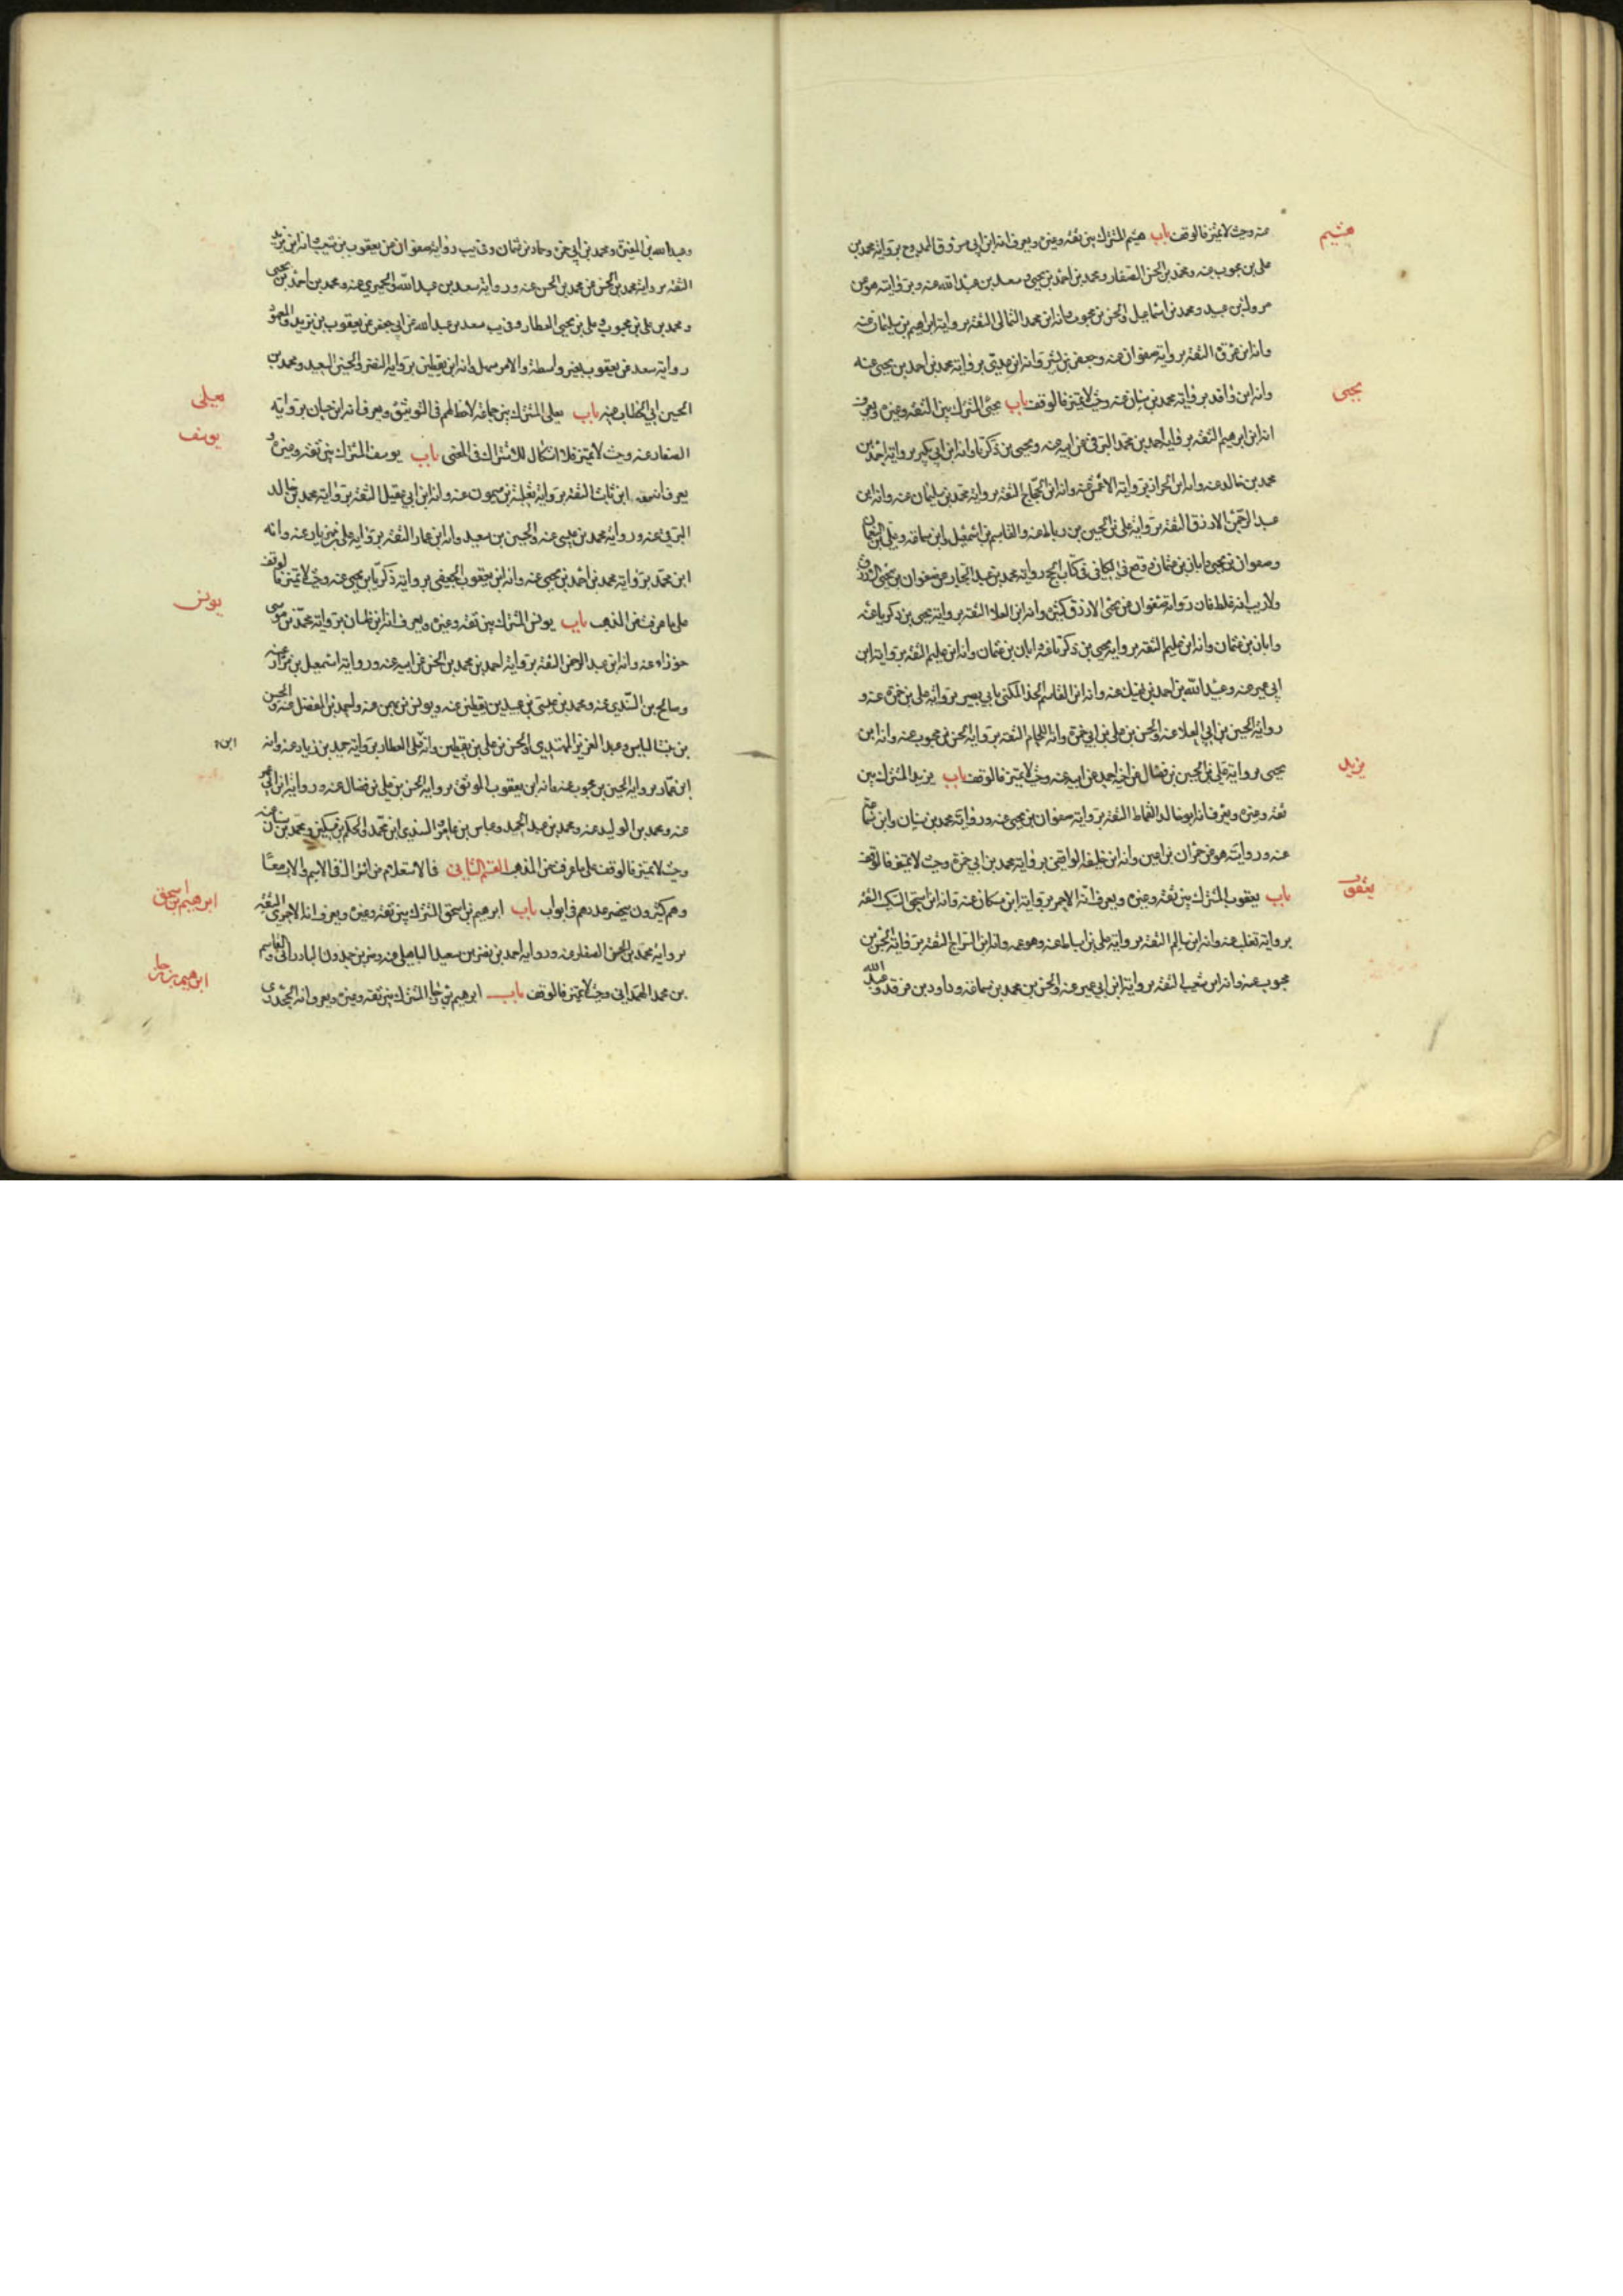 عنه وحيث لا تميز فالوقف باب هيثم المشترك بين ثقة وغيره ويعرف انه ابن ابي مسروق الممدوح برواية محمد بن
هيثم
علي بن محبوب عنه ومحمد بن الحسن الصفار ومحمد بن احمد بن يحيى وسعد بن عبد الله عنه وبروايته هو عن
مروك بن عبيد ومحمد بن اسماعيل والحسن بن محبوب وانه ابن محمد الثمالي الثقة برواية ابراهيم بن سليمان عنه
وانه ابن عروة الثقة برواية صفوان عنه وجعفر بن بشير وانه ابن عدي برواية محمد بن احمد بن يحيى عنه
وانه ابن واقد برواية محمد بن سنان عنه وحيث لا تميز فالوقف باب يحيى المشترك بين الثقة وغيره ويعرف
يحيى
انه ابن ابرهيم الثقة برواية احمد بن محمد البرقي عن ابيه عنه ويحيى بن زكريا وانه ابن ابي بكير برواية احمد بن
محمد بن خالد عنه وانه ابن الجزار برواية الاعمش عنه وانه ابن الحجاج الثقة برواية محمد بن سليمان عنه وانه ابن
عبد الرحمن الازرق الثقة برواية علي بن الحسين بن رباط عنه والقاسم بن اسمعيل وابن سماعة وعلي بن النعمان
وصفوان بن يحيى وابان بن عثمان ووقع في الكافي في كتاب الحج رواية محمد بن عبد الجبار عن صفوان عن يحيى الازرق
ولا ريب انه غلط فان رواية صفوان عن يحيى الازرق كثيرة وانه ابن العلا الثقة برواية يحيى بن زكريا عنه
وابان بن عثمان وانه ابن عليم الثقة برواية يحيى بن زكريا عنه ابان بن عثمان وانه ابن عليم الثقة برواية ابن
ابي عمير عنه وعبيد الله بن احمد بن نهيك عنه وانه ابن القاسم الحذا المكنى بابي بصير برواية علي بن حمزة عنه و
رواية الحسين بن ابي العلا عنه والحسن بن علي بن ابي حمزة وانه اللحام الثقة برواية الحسن بن محبوب عنه وانه ابن
يحيى برواية علي بن الحسين بن فضال عن اخيه احمد عن ابيه عنه وحيث لا تميز فالوقف باب يزيد المشترك بين
يزيد
ثقة وغيره ويعرف انه ابو خالد القماط الثقة برواية صفوان بن يحيى عنه ورواية محمد بن سنان وابن سماعة
عنه وروايته هو عن حمران بن اعين وانه ابن خليفة الواقفي برواية محمد بن ابي حمزة وحيث لا تميز فالوقف
باب يعقوب المشترك بين ثقة وغيره ويعرف انه الاحمر برواية ابن مسكان عنه وانه ابن اسحق السكيت الثقة
يعقوب
برواية ثعلب عنه وانه ابن سالم الثقة برواية علي بن اسباط عنه وهو عمه وانه ابن السراج الثقة برواية الحسن بن
محبوب عنه وانه ابن شعيب الثقة برواية ابن ابي عمير عنه والحسن بن محمد بن سماعة وداود بن فرقد وعبد الله
وعبد الله بن المغيرة ومحمد بن ابي حمزة وحماد بن عثمان وفي يب رواية صفوان عن يعقوب بن شعيب وانه ابن يزيد
الثقة برواية محمد بن الحسن عن محمد بن الحسن عنه ورواية سعد بن عبد الله والحميري عنه ومحمد بن احمد بن يحيى
ومحمد بن علي بن محبوب وعلي بن يحيى العطار وفي يب سعد بن عبد الله عن ابي جعفر عن يعقوب بن يزيد والمعهود
رواية سعد عن يعقوب بغير واسطة والامر سهل وانه ابن يقطين برواية النضر والحسين السعيد ومحمد بن
الحسين ابي الخطاب عنه باب يعلى المشترك بين جماعة لاحظ لهم في التوثيق ويعرف انه ابن حسان برواية
يعلى
الصفار عنه وحيث لا تميز فلا اشكال للاشتراك في المعنى باب يوسف المشترك بين ثقة وغيره و
يوسف
يعرف انه ابن ثابت الثقة برواية ثعلبة بن ميمون عنه وانه ابن ابي عقيل الثقة برواية محمد بن خالد
البرقي عنه ورواية محمد بن عيسى عنه والحسين بن سعيد وانه ابن عمار الثقة برواية علي بن زياد عنه وانه
ابن محمد برواية محمد بن احمد بن يحيى عنه وانه ابن يعقوب الجعفي برواية زكريا بن يحيى عنه وحيث لا تميز فالوقف
على ما عرفت من المذهب باب يونس المشترك بين ثقة وغيره ويعرف انه ابن ظبيان برواية محمد بن موسى
يونس
خوراء عنه وانه ابن عبد الرحمن الثقة برواية احمد بن محمد بن الحسن عن ابيه عنه ورواية اسمعيل بن مرار عنه
وصالح بن السندي عنه ومحمد بن عيسى بن عبيد بن يقطين عنه ويونس بن بهمن عنه واحمد بن الفضل عنه والحسن
بن بنت الياس وعبد العزيز المهتدي والحسن بن علي بن يقطين وانه علي العطار برواية حميد بن زياد عنه وانه
ابن
ابن عمار برواية الحسين بن محبوب عنه وانه ابن يعقوب الموثق برواية الحسن بن علي بن فضال عنه ورواية ابن ابي عمير
عنه ومحمد بن الوليد عنه ومحمد بن عبد الحميد وعباس بن عامر والسندي ابن محمد والحكم بن مسكين ومحمد بن سنان عنه
وحيث لا تميز فالوقف على ما عرفت من المذهب القسم الثاني في الاستعلام من اشترك في الاسم والاب معا
وهم كثيرون ينحصر عددهم في ابواب باب ابرهيم بن اسحق المشترك بين ثقة وغيره ويعرف انه الاحمري الثقة
ابرهيم بن اسحق
برواية محمد بن الحسن الصفار عنه ورواية احمد بن نصر بن سعيد الباهلي عنه وعن بن حمدون البادرائي والقاسم
بن محمد الهمداني وحيث لا تميز فالوقف باب ابرهيم بن رجا المشترك بين ثقة وغيره ويعرف انه الجحدري
ابرهيم بن رجا